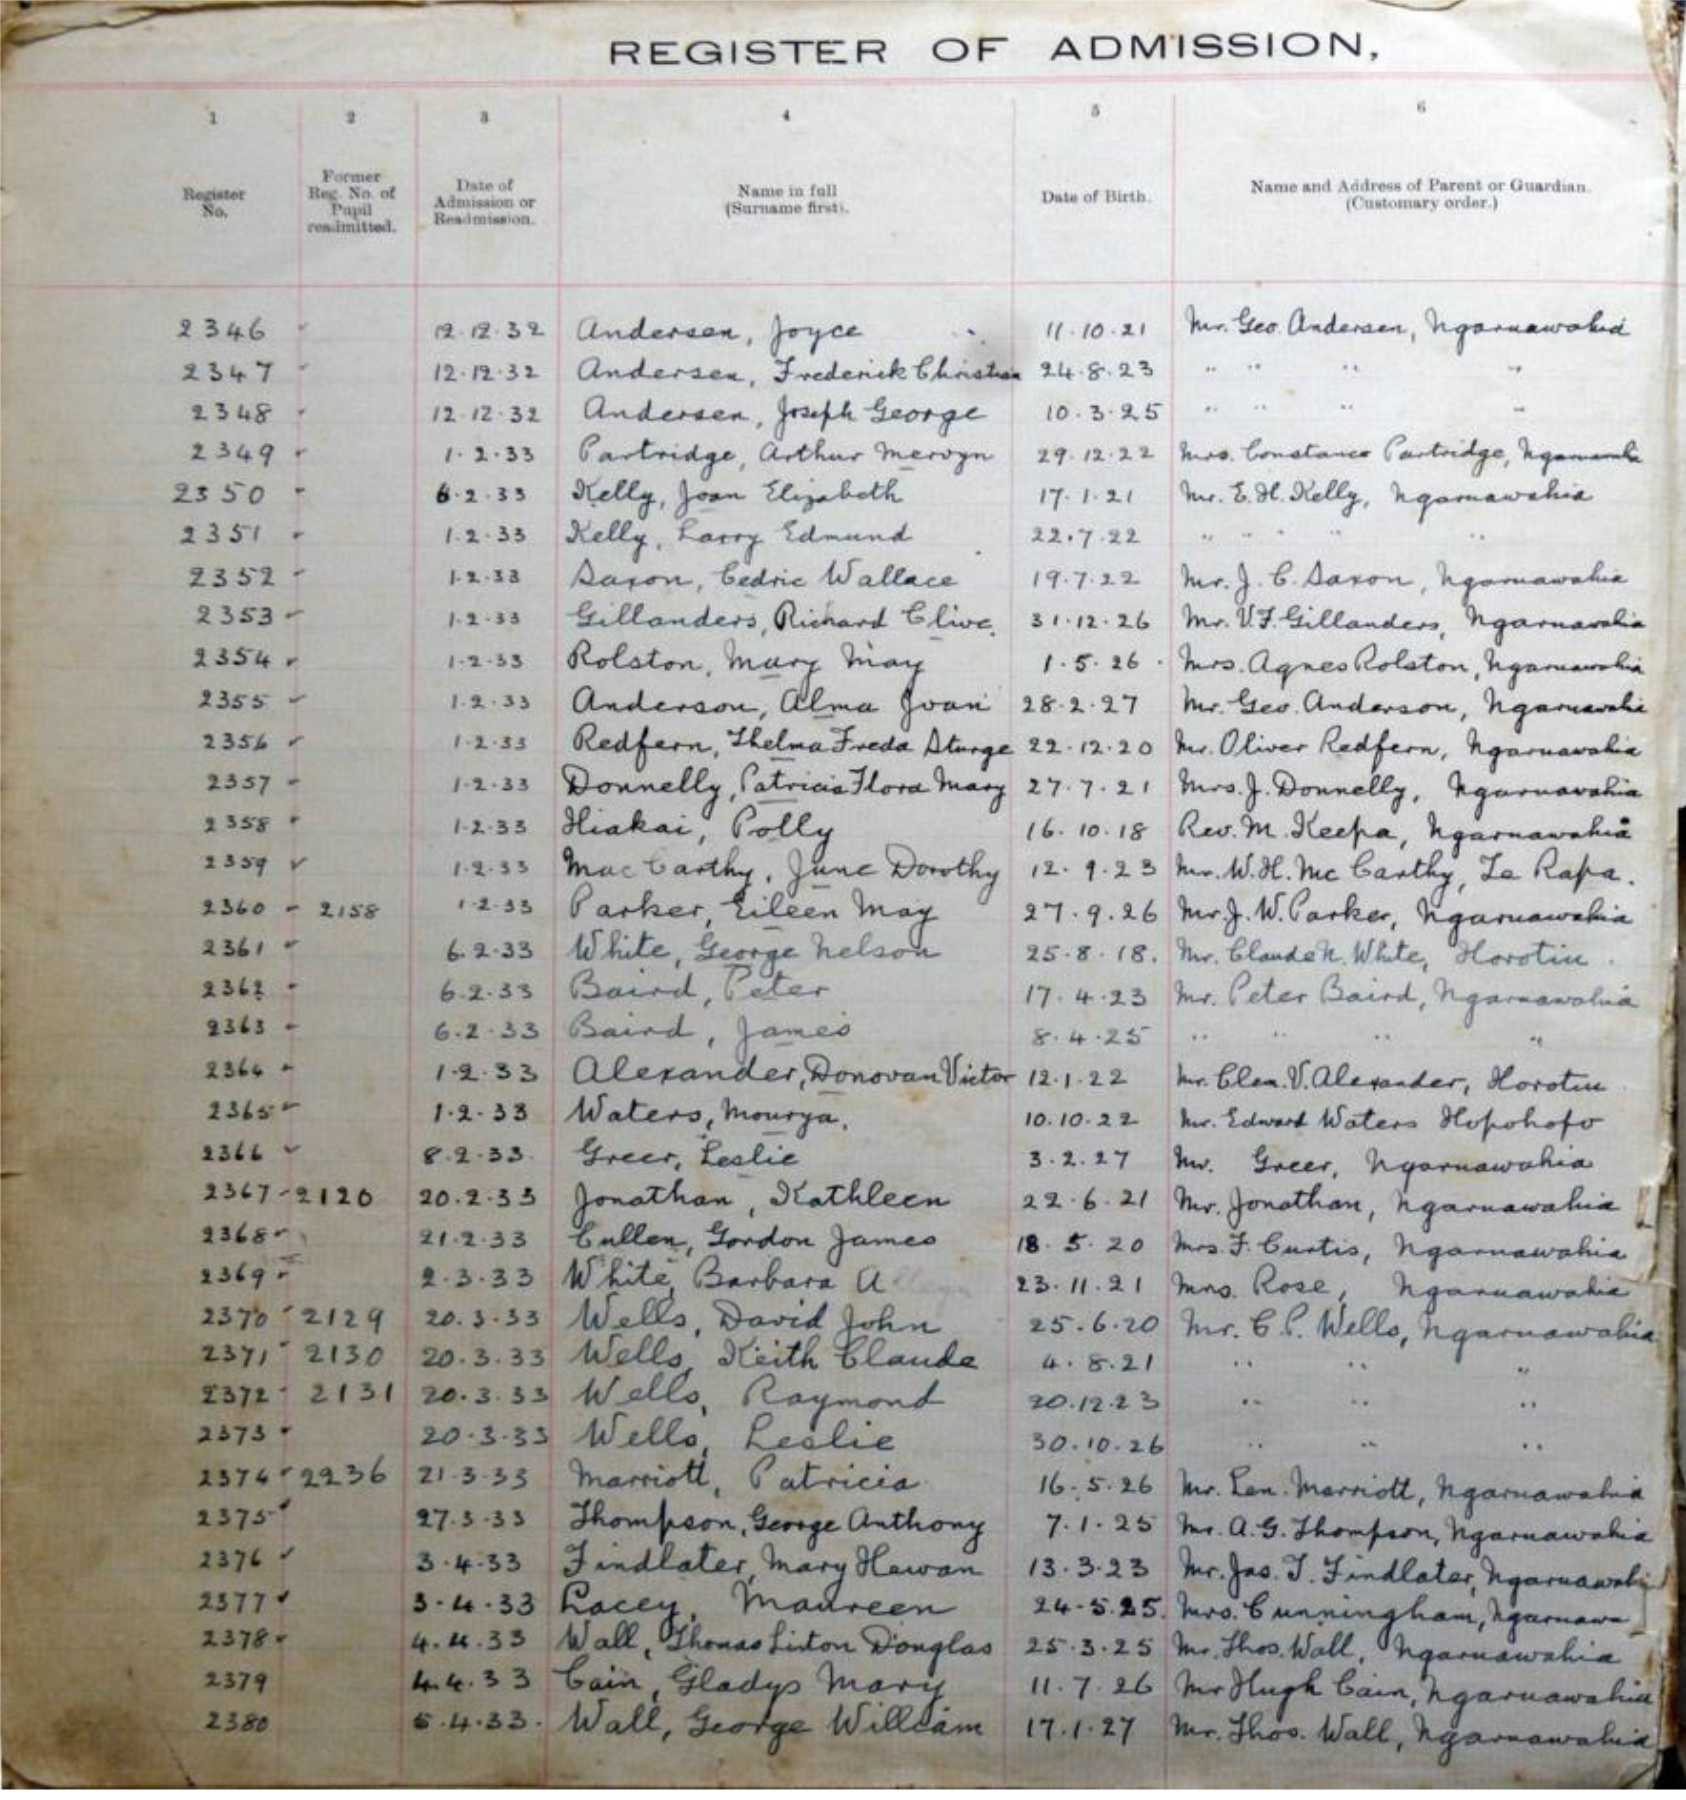 REGISTER OF ADMISSION,
1 2 3 4 5 6
Register No. Former Reg. No. of Pupil readmitted. Date of Admission or Readmission. Name in full (Surname first). Date of Birth. Name and Address of Parent or Guardian. (Customary order.)
2346 12.12.32 Andersen, Joyce 11.10.21 Mr. Geo. Andersen, Ngaruawahia
2347 12.12.32 Andersen, Frederick Christian 24.8.23 " " " "
2348 12.12.32 Andersen, Joseph George 10.3.25 " " " "
2349 1.2.33 Partridge, Arthur Mervyn 29.12.22 Mrs. Constance Partridge,
2350 6.2.33 Kelly, Joan Elizabeth 17.1.21 Mr. E. H. Kelly, Ngaruawahia
2351 1.2.33 Kelly, Larry Edmund 22.7.22 " " " " "
2352 1.2.33 Saxon, Cedric Wallace 19.7.22 Mr. J. C. Saxon, Ngaruawahia
2353 1.2.33 Gillanders, Richard Clive. 31.12.26 Mr. V. F. Gillanders, Ngaruawahia
2354 1.2.33 Rolston, Mary May 1.5.26 Mrs. Agnes Rolston, Ngaruawahia
2355 1.2.33 Anderson, Alma Joan 28.2.27 Mr. Geo. Anderson, Ngaruawahia
2356 1.2.33 Redfern, Thelma Freda Sturge 22.12.20 Mr. Oliver Redfern, Ngaruawahia
2357 1.2.33 Donnelly, Patricia Flora Mary 27.7.21 Mrs. J. Donnelly, Ngaruawahia
2358 1.2.33 Hiakai, Polly 16.10.18 Rev. M. Keepa, Ngaruawahia
2359 1.2.33 MacCarthy, June Dorothy 12.9.23 Mr. W. H. McCarthy, Te Rapa.
2360 2158 1.2.33 Parker, Eileen May 27.9.26 Mr. J. W. Parker, Ngaruawahia
2361 6.2.33 White, George Nelson 25.8.18. Mr. Claude N. White, Horotiu.
2362 6.2.33 Baird, Peter 17.4.23 Mr. Peter Baird, Ngaruawahia
2363 6.2.33 Baird, James 8.4.25 " " " "
2364 1.2.33 Alexander, Donovan Victor 12.1.22 Mr. Clem. V. Alexander, Horotiu
2365 1.2.33 Waters, Mourya. 10.10.22 Mr. Edward Waters Hopohopo
2366 8.2.33. Greer, Leslie 3.2.27 Mr. Greer, Ngaruawahia
2367 2120 20.2.33 Jonathan, Kathleen 22.6.21 Mr. Jonathan, Ngaruawahia
2368 21.2.33 Cullen, Gordon James 18.5.20 Mrs. F. Curtis, Ngaruawahia
2369 2.3.33 White, Barbara A 23.11.21 Mrs. Rose, Ngaruawahia
2370 2129 20.3.33 Wells, David John 25.6.20 Mr. C. P. Wells, Ngaruawahia
2371 2130 20.3.33 Wells, Keith Claude 4.8.21 " " "
2372 2131 20.3.33 Wells, Raymond 20.12.23 " " "
2373 20.3.33 Wells, Leslie 30.10.26 " " "
2374 2236 21.3.33 Marriott, Patricia 16.5.26 Mr. Len. Marriott, Ngaruawahia
2375 27.3.33 Thompson, George Anthony 7.1.25 Mr. A. G. Thompson, Ngaruawahia
2376 3.4.33 Findlater, Mary Hewan 13.3.23 Mr. Jas. T. Findlater, Ngaruawahi
2377 3.4.33 Lacey, Maureen 24.5.25. Mrs. Cunningham, Ngaruawa
2378 4.4.33 Wall, Thomas Linton Douglas 25.3.25 Mr. Thos. Wall, Ngaruawahia
2379 4.4.33 Cain, Gladys Mary 11.7.26 Mr Hugh Cain, Ngaruawahia
2380 5.4.33. Wall, George William 17.1.27 Mr. Thos. Wall, Ngaruawahia